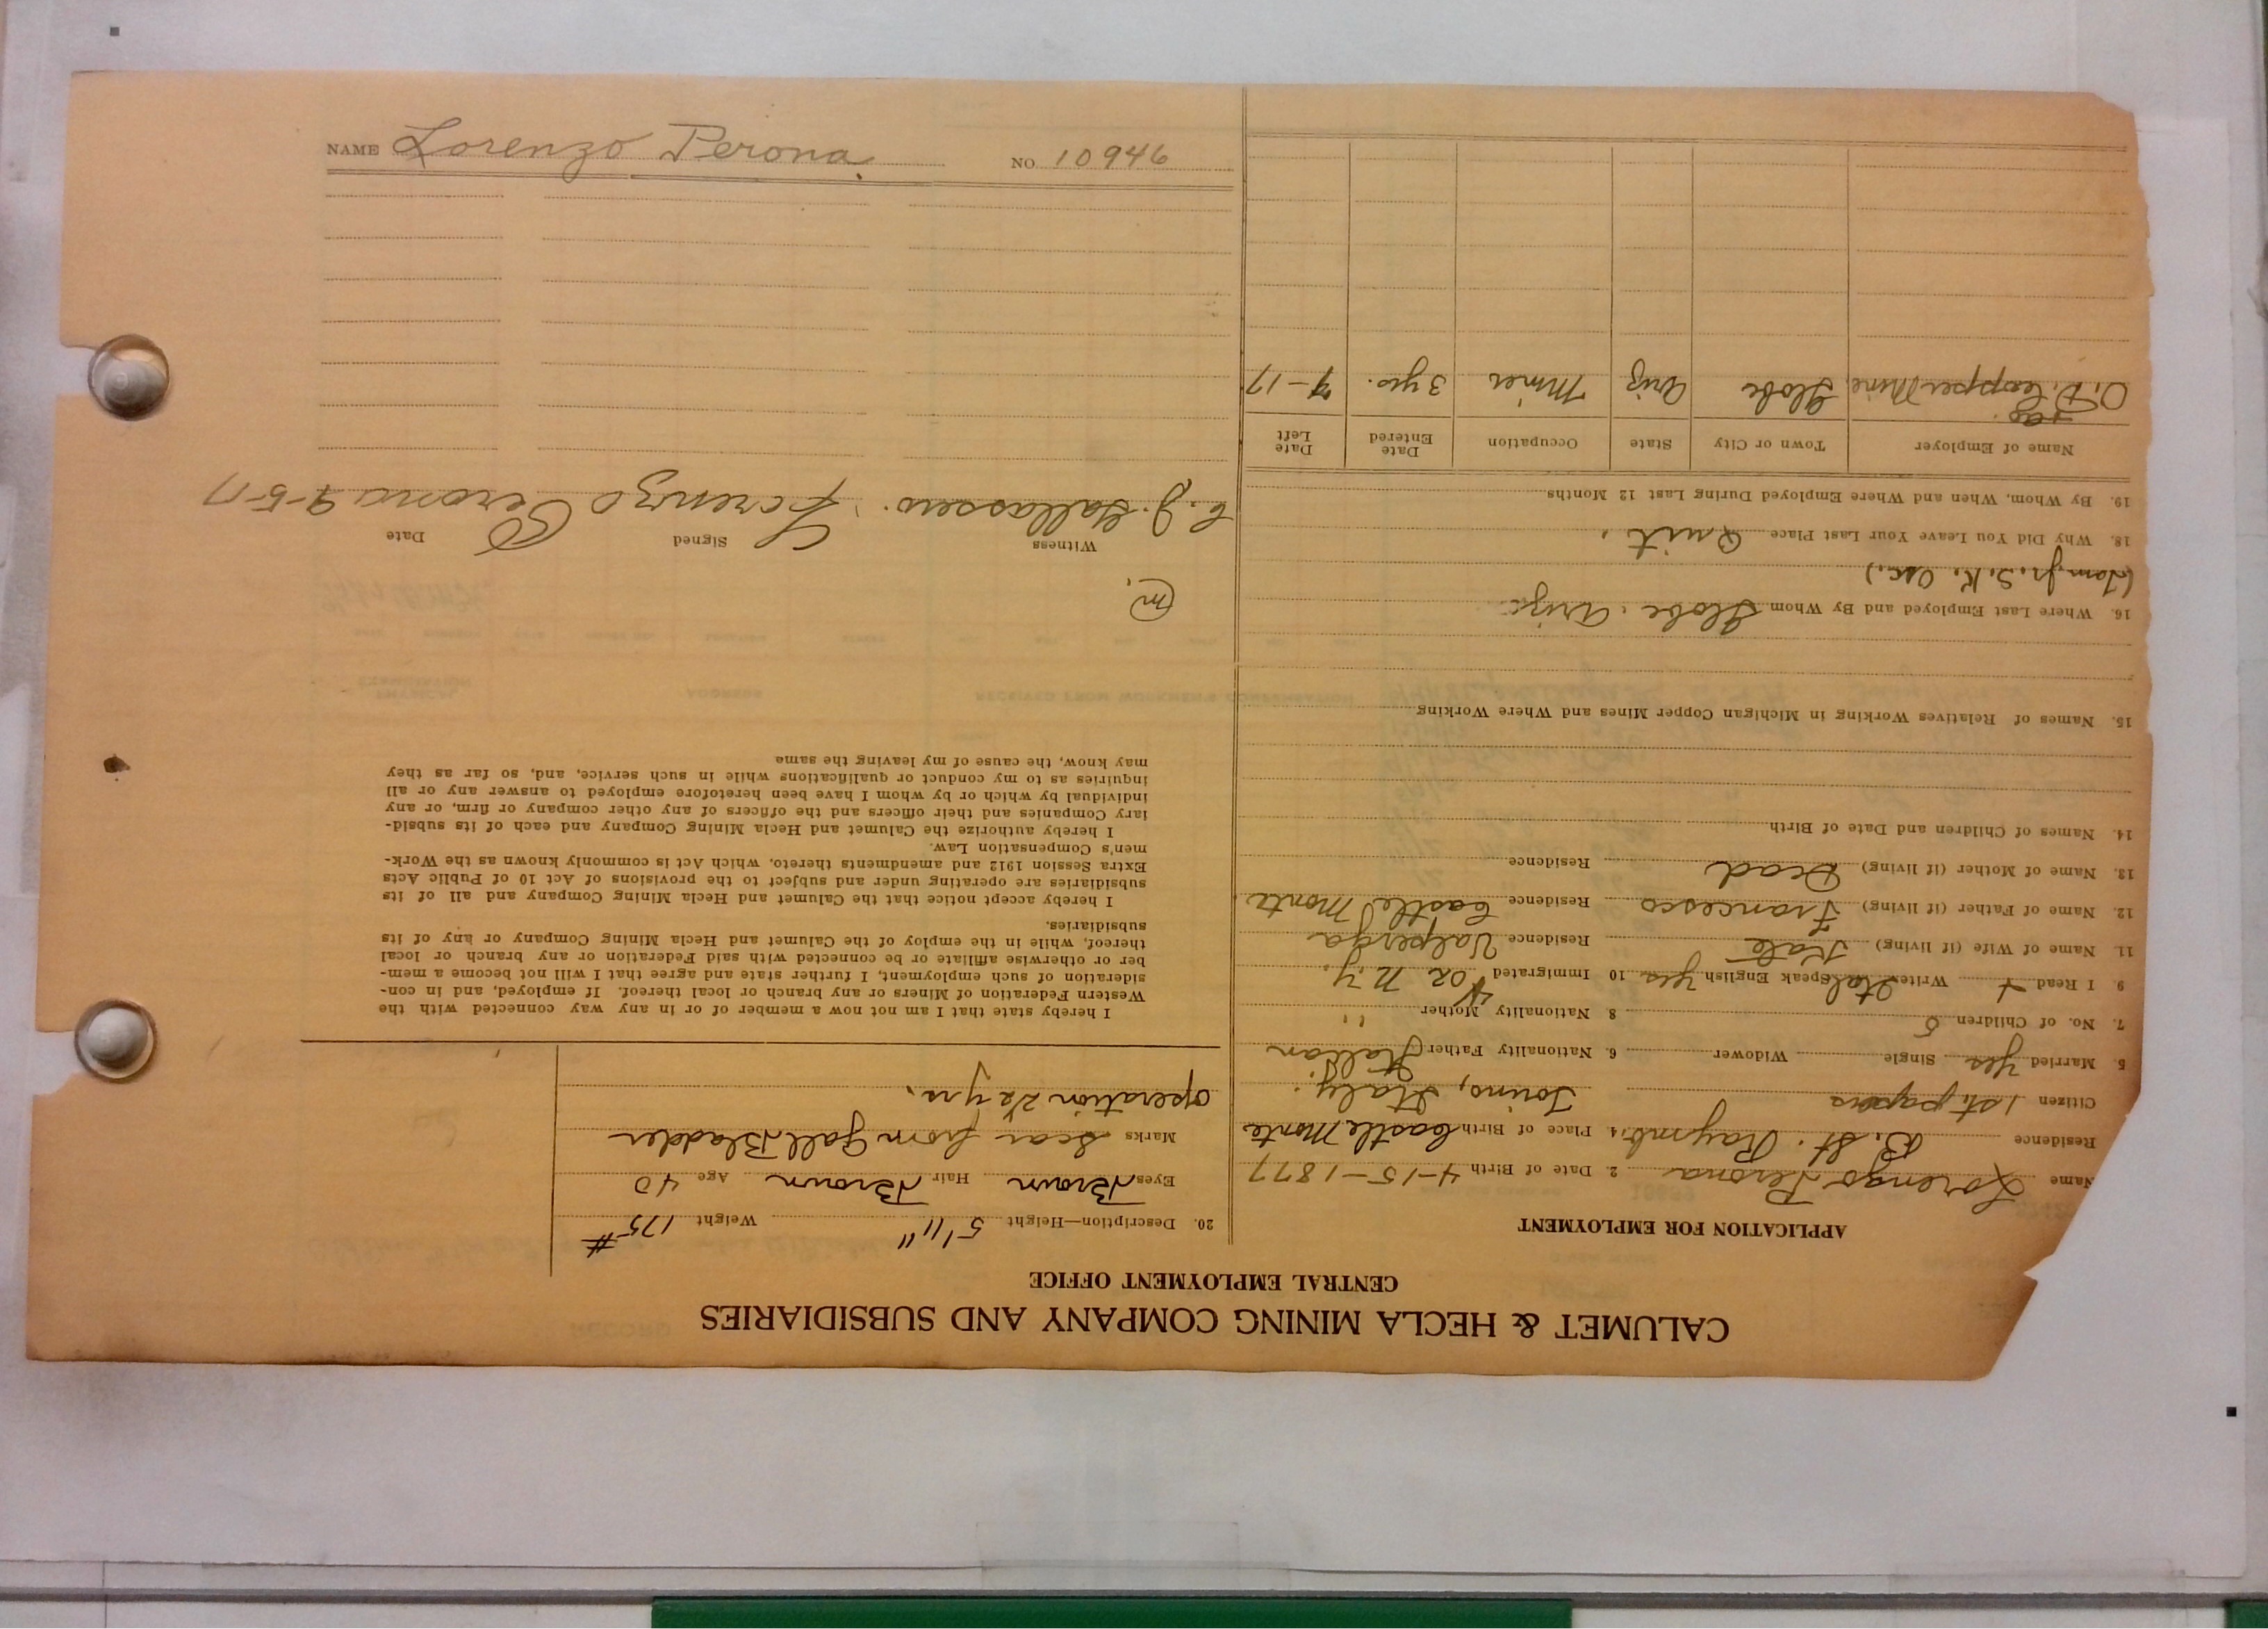 NAME Lorenzo Perona NO. 10946
CALUMET & HECLA MINING COMPANY AND SUBSIDIARIES
CENTRAL EMPLOYMENT OFFICE
APPLICATION FOR EMPLOYMENT
Name Lorenzo Perona 2. Date of Birth 4-15-1877
Residence B. St. Raymb. 4. Place of Birth Castle Monte
Citizen 1st papers Torino, Italy.
5 Married Yes Single Widower 6. Nationality Father Italian
7. No. of Children 5 8 Nationality Mother "
9. I Read + Write Ital Speak English Yes 10 Immigrated '02 N.Y.
11. Name of Wife (if living) Kate Residence Valperga
12. Name of Father (if living) Francesco Residence Castle Monte.
13. Name of Mother (if living) Dead Residence
14. Names of Children and Date of Birth
15. Names of Relatives Working in Michigan Copper Mines and Where Working
16. Where Last Employed and By Whom Globe, Ariz.
(Tam. Jr. S. K. Osc.)
18. Why Did You Leave Your Last Place Quit.
19. By Whom, When and Where Employed During Last 12 Months
Name of Employer Town or City State Occupation Date Entered Date Left
O.D. Copper Mine Globe Ariz Miner 3 yrs. 7-17
20. Description—Height 5'11" Weight 175 #
Eyes Brown Hair Brown Age 40
Marks Scar from Gall Bladder
operation 2½ yrs.
I hereby state that I am not now a member of or in any way connected with the
Western Federation of Miners or any branch or local thereof. If employed, and in con-
sideration of such employment, I further state and agree that I will not become a mem-
ber or otherwise affiliate or be connected with said Federation or any branch or local
thereof, while in the employ of the Calumet and Hecla Mining Company or any of its
subsidiaries.
I hereby accept notice that the Calumet and Hecla Mining Company and all of its
subsidiaries are operating under and subject to the provisions of Act 10 of Public Acts
Extra Session 1912 and amendments thereto, which Act is commonly known as the Work-
men's Compensation Law.
I hereby authorize the Calumet and Hecla Mining Company and each of its subsid-
iary Companies and their officers and the officers of any other company or firm, or any
individual by which or by whom I have been heretofore employed to answer any or all
inquiries as to my conduct or qualifications while in such service, and, so far as they
may know, the cause of my leaving the same
(m.)
Witness Signed Date
C. J. Gallassero. Lorenzo Perona 9-5-17